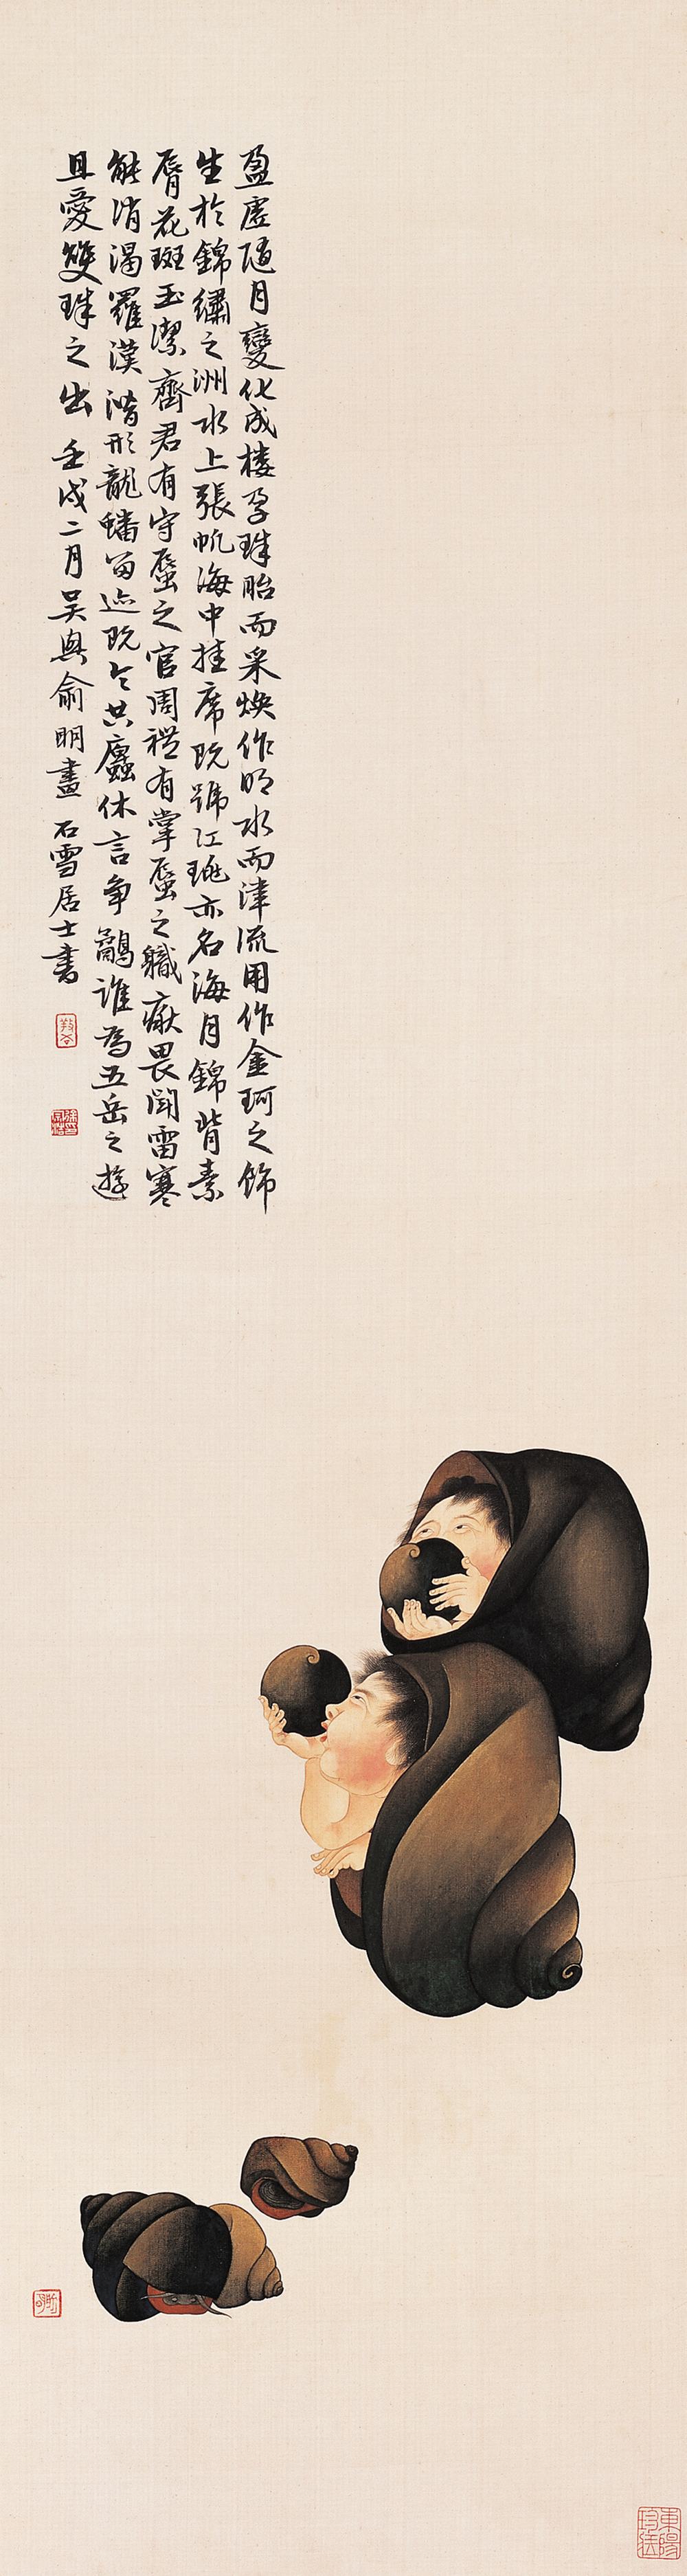 盈虚随月變化成樓孕珠胎而采煥作明水而津流用作金珂之飾
生於錦繡之洲水上張帆海中挂席既號江珧亦名海月錦背素
脣花斑玉潔齊君有守蜃之官周禮有掌蜃之職厭畏聞雷寒
能消渴羅漢潛形龍蟠留迹既令共廬休言争鷸誰為五岳之遊
且愛雙珠之出 壬戌二月吴興俞明畫 石雪居士書
東陽